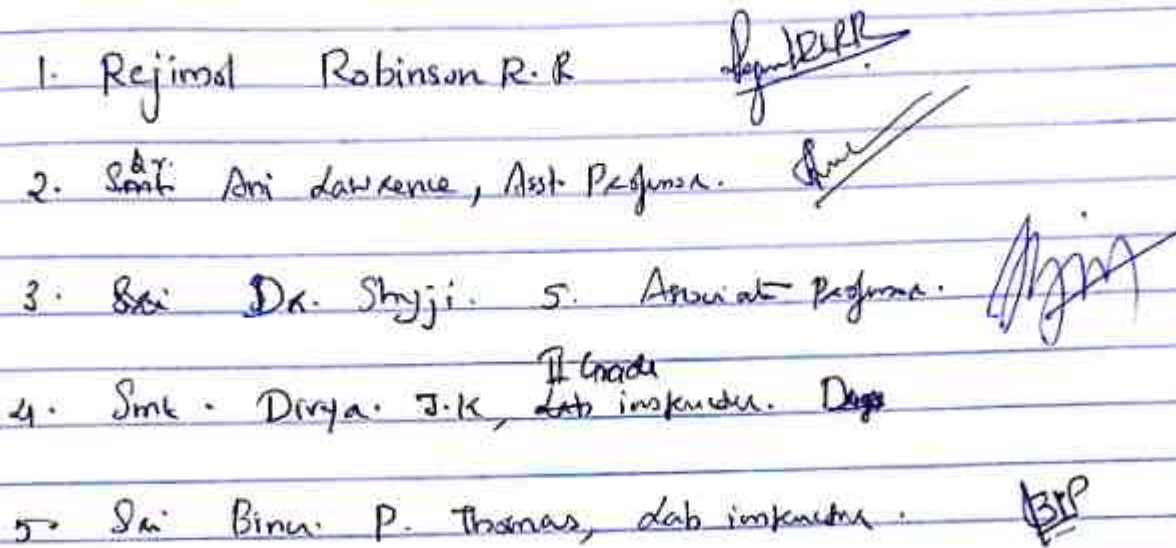 1. Rejimol Robinson R. R
2. Smt. Dr. Ani Lawrence, Asst. Professor.
3. Sri Dr. Shyji. S. Associate Professor.
II Grade
4. Smt. Divya. J.K, Lab instructor. Divya
5. Sri Binu. P. Thomas, Lab instructor.